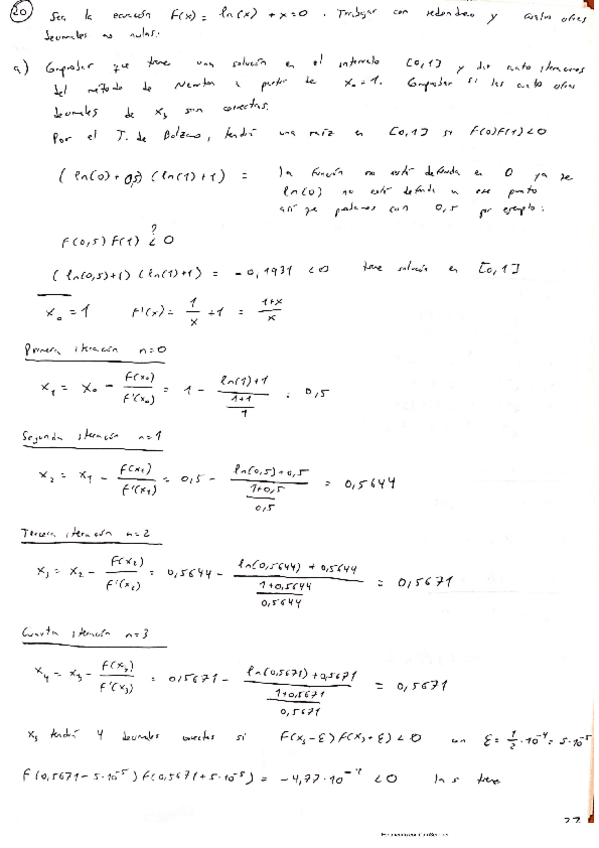 20) Sea la ecuación F(x) = ln(x) + x = 0. Trabajar con redondeo y cuatro cifras
decimales no nulas.
a) Comprobar que tiene una solución en el intervalo [0,1] y dar cuatro iteraciones
del método de Newton a partir de x₀ = 1. Comprobar si las cuatro cifras
decimales de x₃ son correctas.
Por el T. de Bolzano, tendrá una raíz en [0,1] si F(0)F(1) < 0
(ln(0) + 0,5) (ln(1) + 1) = la función no está definida en 0 ya que
ln(0) no está definida en ese punto
así que probamos con 0,5 por ejemplo:
F(0,5) F(1) ¿ 0 ?
(ln(0,5)+1) (ln(1)+1) = -0,1931 < 0 tiene solución en [0,1]
x₀ = 1 F'(x) = 1/x + 1 = (1+x)/x
Primera iteración n=0
x₁ = x₀ - F(x₀)/F'(x₀) = 1 - (ln(1)+1)/((1+1)/1) = 0,5
Segunda iteración n=1
x₂ = x₁ - F(x₁)/F'(x₁) = 0,5 - (ln(0,5)+0,5)/((1+0,5)/0,5) = 0,5644
Tercera iteración n=2
x₃ = x₂ - F(x₂)/F'(x₂) = 0,5644 - (ln(0,5644)+0,5644)/((1+0,5644)/0,5644) = 0,5671
Cuarta iteración n=3
x₄ = x₃ - F(x₃)/F'(x₃) = 0,5671 - (ln(0,5671)+0,5671)/((1+0,5671)/0,5671) = 0,5671
x₃ tendrá 4 decimales correctos si F(x₃-ε) F(x₃+ε) < 0 con ε = 1/2 · 10⁻⁴ = 5·10⁻⁵
F(0,5671 - 5·10⁻⁵) F(0,5671 + 5·10⁻⁵) = -4,77·10 < 0 tiene